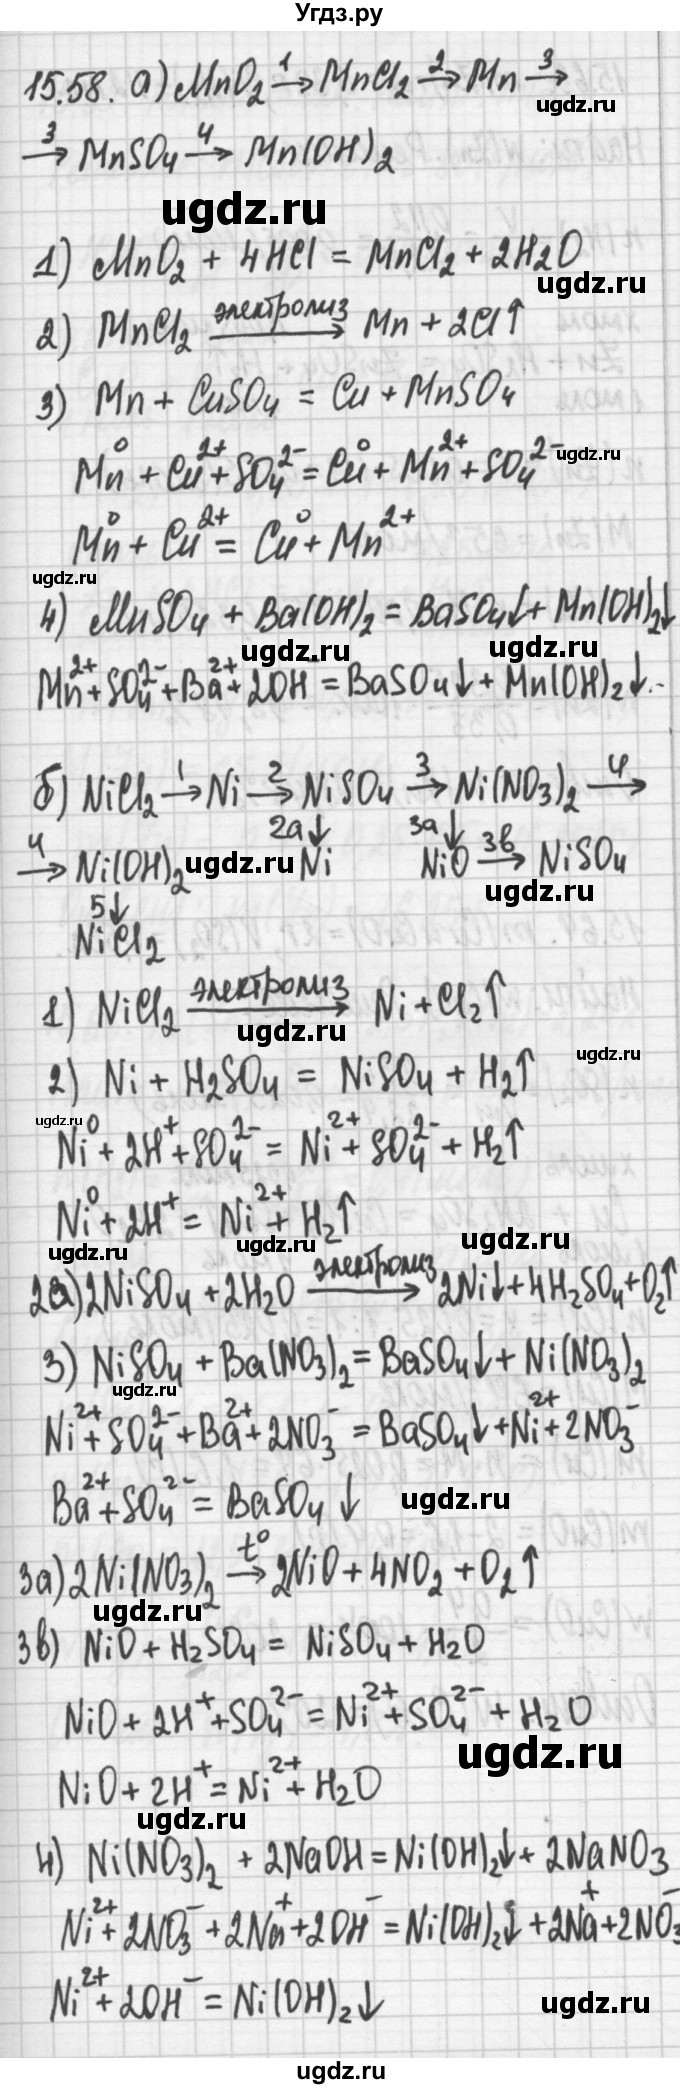 Угдз.ру
15.58. а) MnO₂ →¹ MnCl₂ →² Mn →³
ugdz.ru
→³ MnSO₄ →⁴ Mn(OH)₂
ugdz.ru
1) MnO₂ + 4HCl = MnCl₂ + 2H₂O
ugdz.ru ugdz.ru
2) MnCl₂ →(электролиз) Mn + 2Cl↑
3) Mn + CuSO₄ = Cu + MnSO₄
ugdz.ru
Mn⁰ + Cu²⁺ + SO₄²⁻ = Cu⁰ + Mn²⁺ + SO₄²⁻
Mn⁰ + Cu²⁺ = Cu⁰ + Mn²⁺
ugdz.ru
4) MnSO₄ + Ba(OH)₂ = BaSO₄↓ + Mn(OH)₂↓
ugdz.ru ugdz.ru
Mn²⁺ + SO₄²⁻ + Ba²⁺ + 2OH⁻ = BaSO₄↓ + Mn(OH)₂↓.
б) NiCl₂ →¹ Ni →² NiSO₄ →³ Ni(NO₃)₂ →⁴
2а↓ 3а↓
→⁴ Ni(OH)₂ Ni NiO →³ᵇ NiSO₄
ugdz.ru ugdz.ru
5↓
NiCl₂
1) NiCl₂ →(электролиз) Ni + Cl₂↑
ugdz.ru
ugdz.ru
2) Ni + H₂SO₄ = NiSO₄ + H₂↑
ugdz.ru
Ni⁰ + 2H⁺ + SO₄²⁻ = Ni²⁺ + SO₄²⁻ + H₂↑
Ni⁰ + 2H⁺ = Ni²⁺ + H₂↑
ugdz.ru ugdz.ru ugdz.ru
2а) 2NiSO₄ + 2H₂O →(электролиз) 2Ni↓ + 4H₂SO₄ + O₂↑
3) NiSO₄ + Ba(NO₃)₂ = BaSO₄↓ + Ni(NO₃)₂
ugdz.ru
Ni²⁺ + SO₄²⁻ + Ba²⁺ + 2NO₃⁻ = BaSO₄↓ + Ni²⁺ + 2NO₃⁻
Ba²⁺ + SO₄²⁻ = BaSO₄↓
ugdz.ru
3а) 2Ni(NO₃)₂ →(t⁰) 2NiO + 4NO₂ + O₂↑
ugdz.ru
3в) NiO + H₂SO₄ = NiSO₄ + H₂O
NiO + 2H⁺ + SO₄²⁻ = Ni²⁺ + SO₄²⁻ + H₂O
ugdz.ru
NiO + 2H⁺ = Ni²⁺ + H₂O
ugdz.ru
4) Ni(NO₃)₂ + 2NaOH = Ni(OH)₂↓ + 2NaNO₃
Ni²⁺ + 2NO₃⁻ + 2Na⁺ + 2OH⁻ = Ni(OH)₂↓ + 2Na⁺ + 2NO₃⁻
Ni²⁺ + 2OH⁻ = Ni(OH)₂↓
ugdz.ru
ugdz.ru